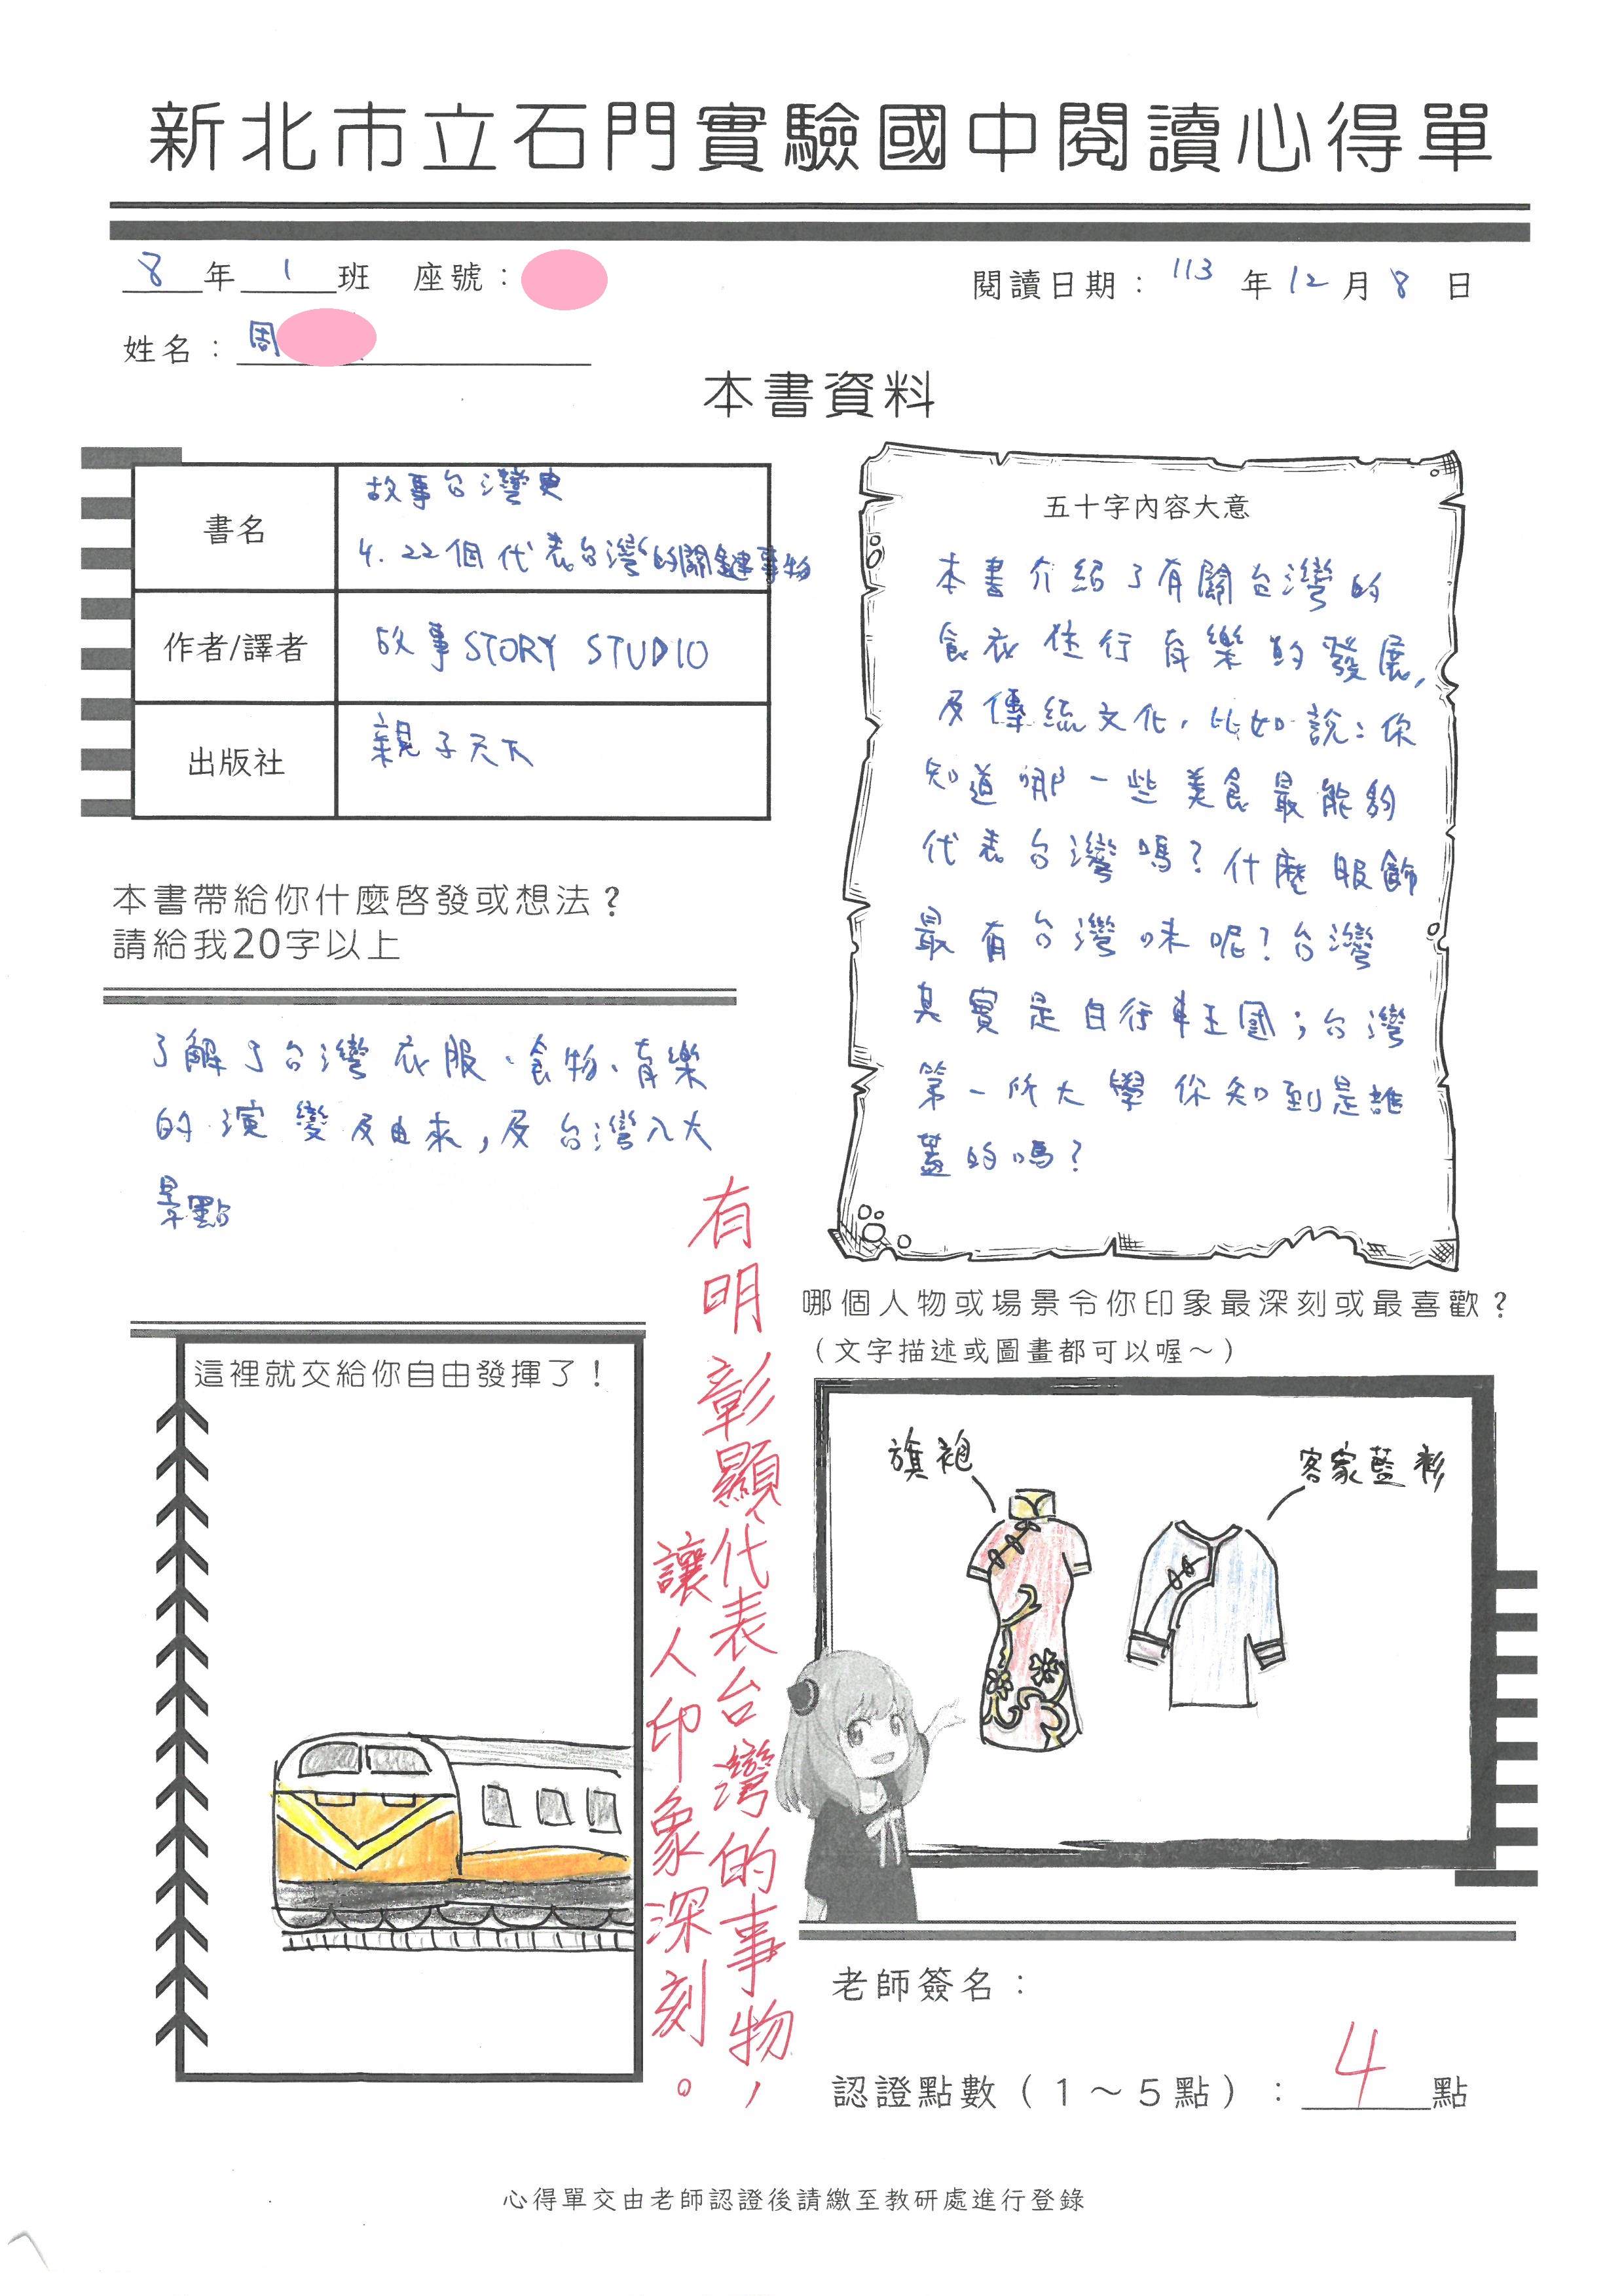 新北市立石門實驗國中閱讀心得單
8年1班 座號：
閱讀日期：113年12月8日
姓名：周
本書資料
書名
故事台灣史
4. 22個代表台灣的關鍵事物
作者/譯者
故事STORY STUDIO
出版社
親子天下
五十字內容大意
本書介紹了有關台灣的
食衣住行育樂的發展,
及傳統文化,比如說:你
知道哪一些美食最能夠
代表台灣嗎?什麼服飾
最有台灣味呢?台灣
其實是自行車王國;台灣
第一所大學你知到是誰
蓋的嗎?
本書帶給你什麼啓發或想法？
請給我20字以上
了解了台灣衣服、食物、育樂
的演變及由來,及台灣八大
景點
有明彰顯代表台灣的事物,
讓人印象深刻。
哪個人物或場景令你印象最深刻或最喜歡？
（文字描述或圖畫都可以喔～）
旗袍
客家藍衫
這裡就交給你自由發揮了！
老師簽名：
認證點數（1～5點）：4點
心得單交由老師認證後請繳至教研處進行登錄